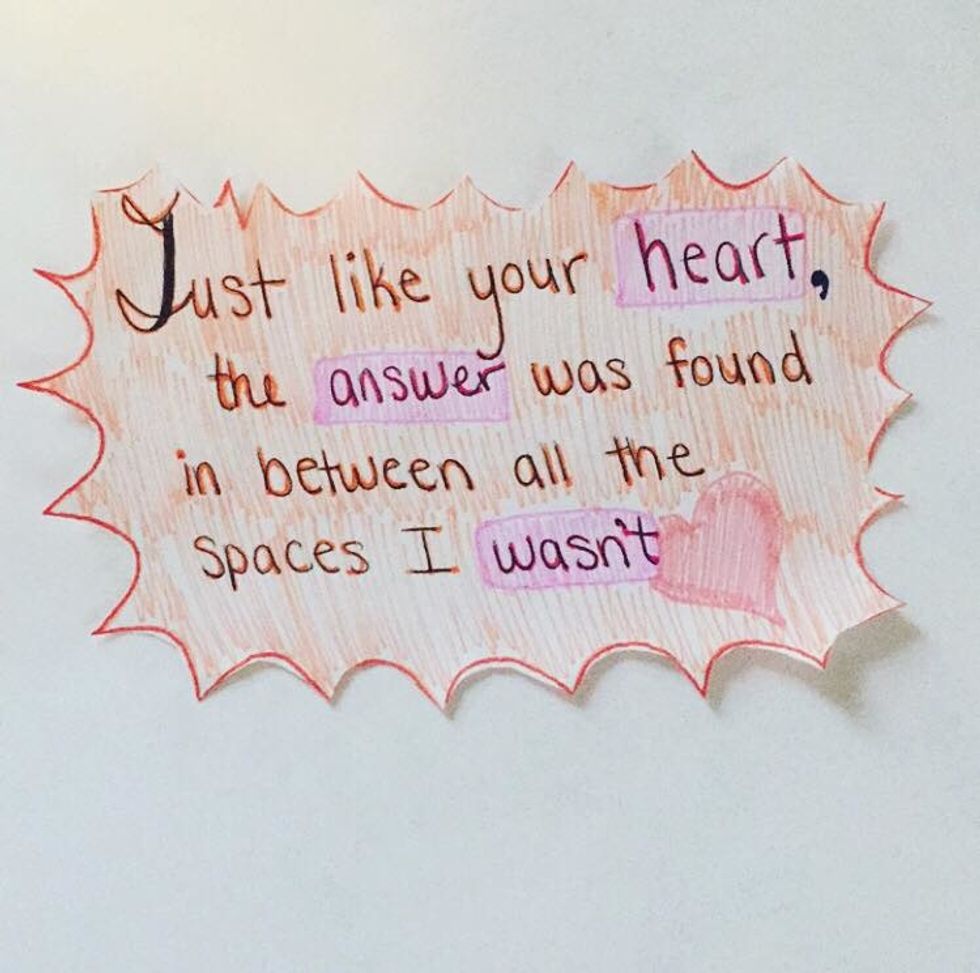 Just like your heart,
the answer was found
in between all the
spaces I wasn't